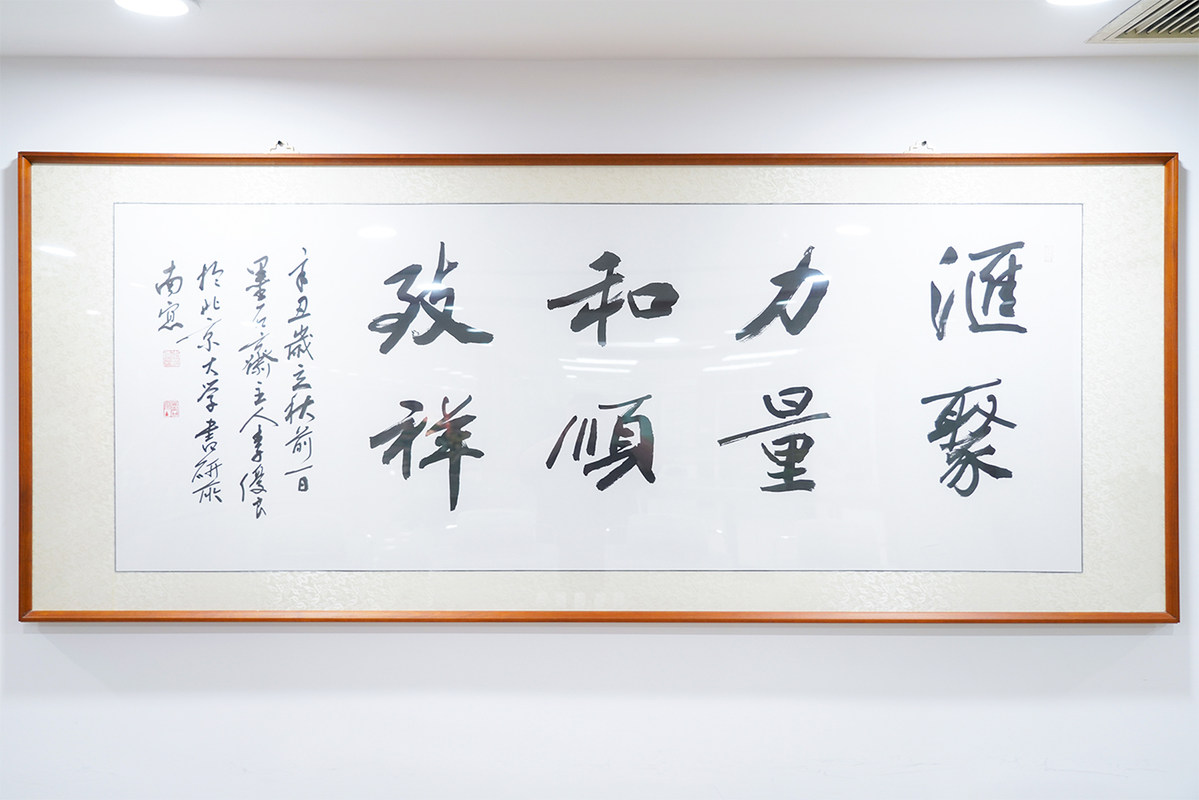 滙聚
力量
和順
致祥
辛丑歲立秋前一日
墨石齋主人李優良書
於北京大学書研所
南窓